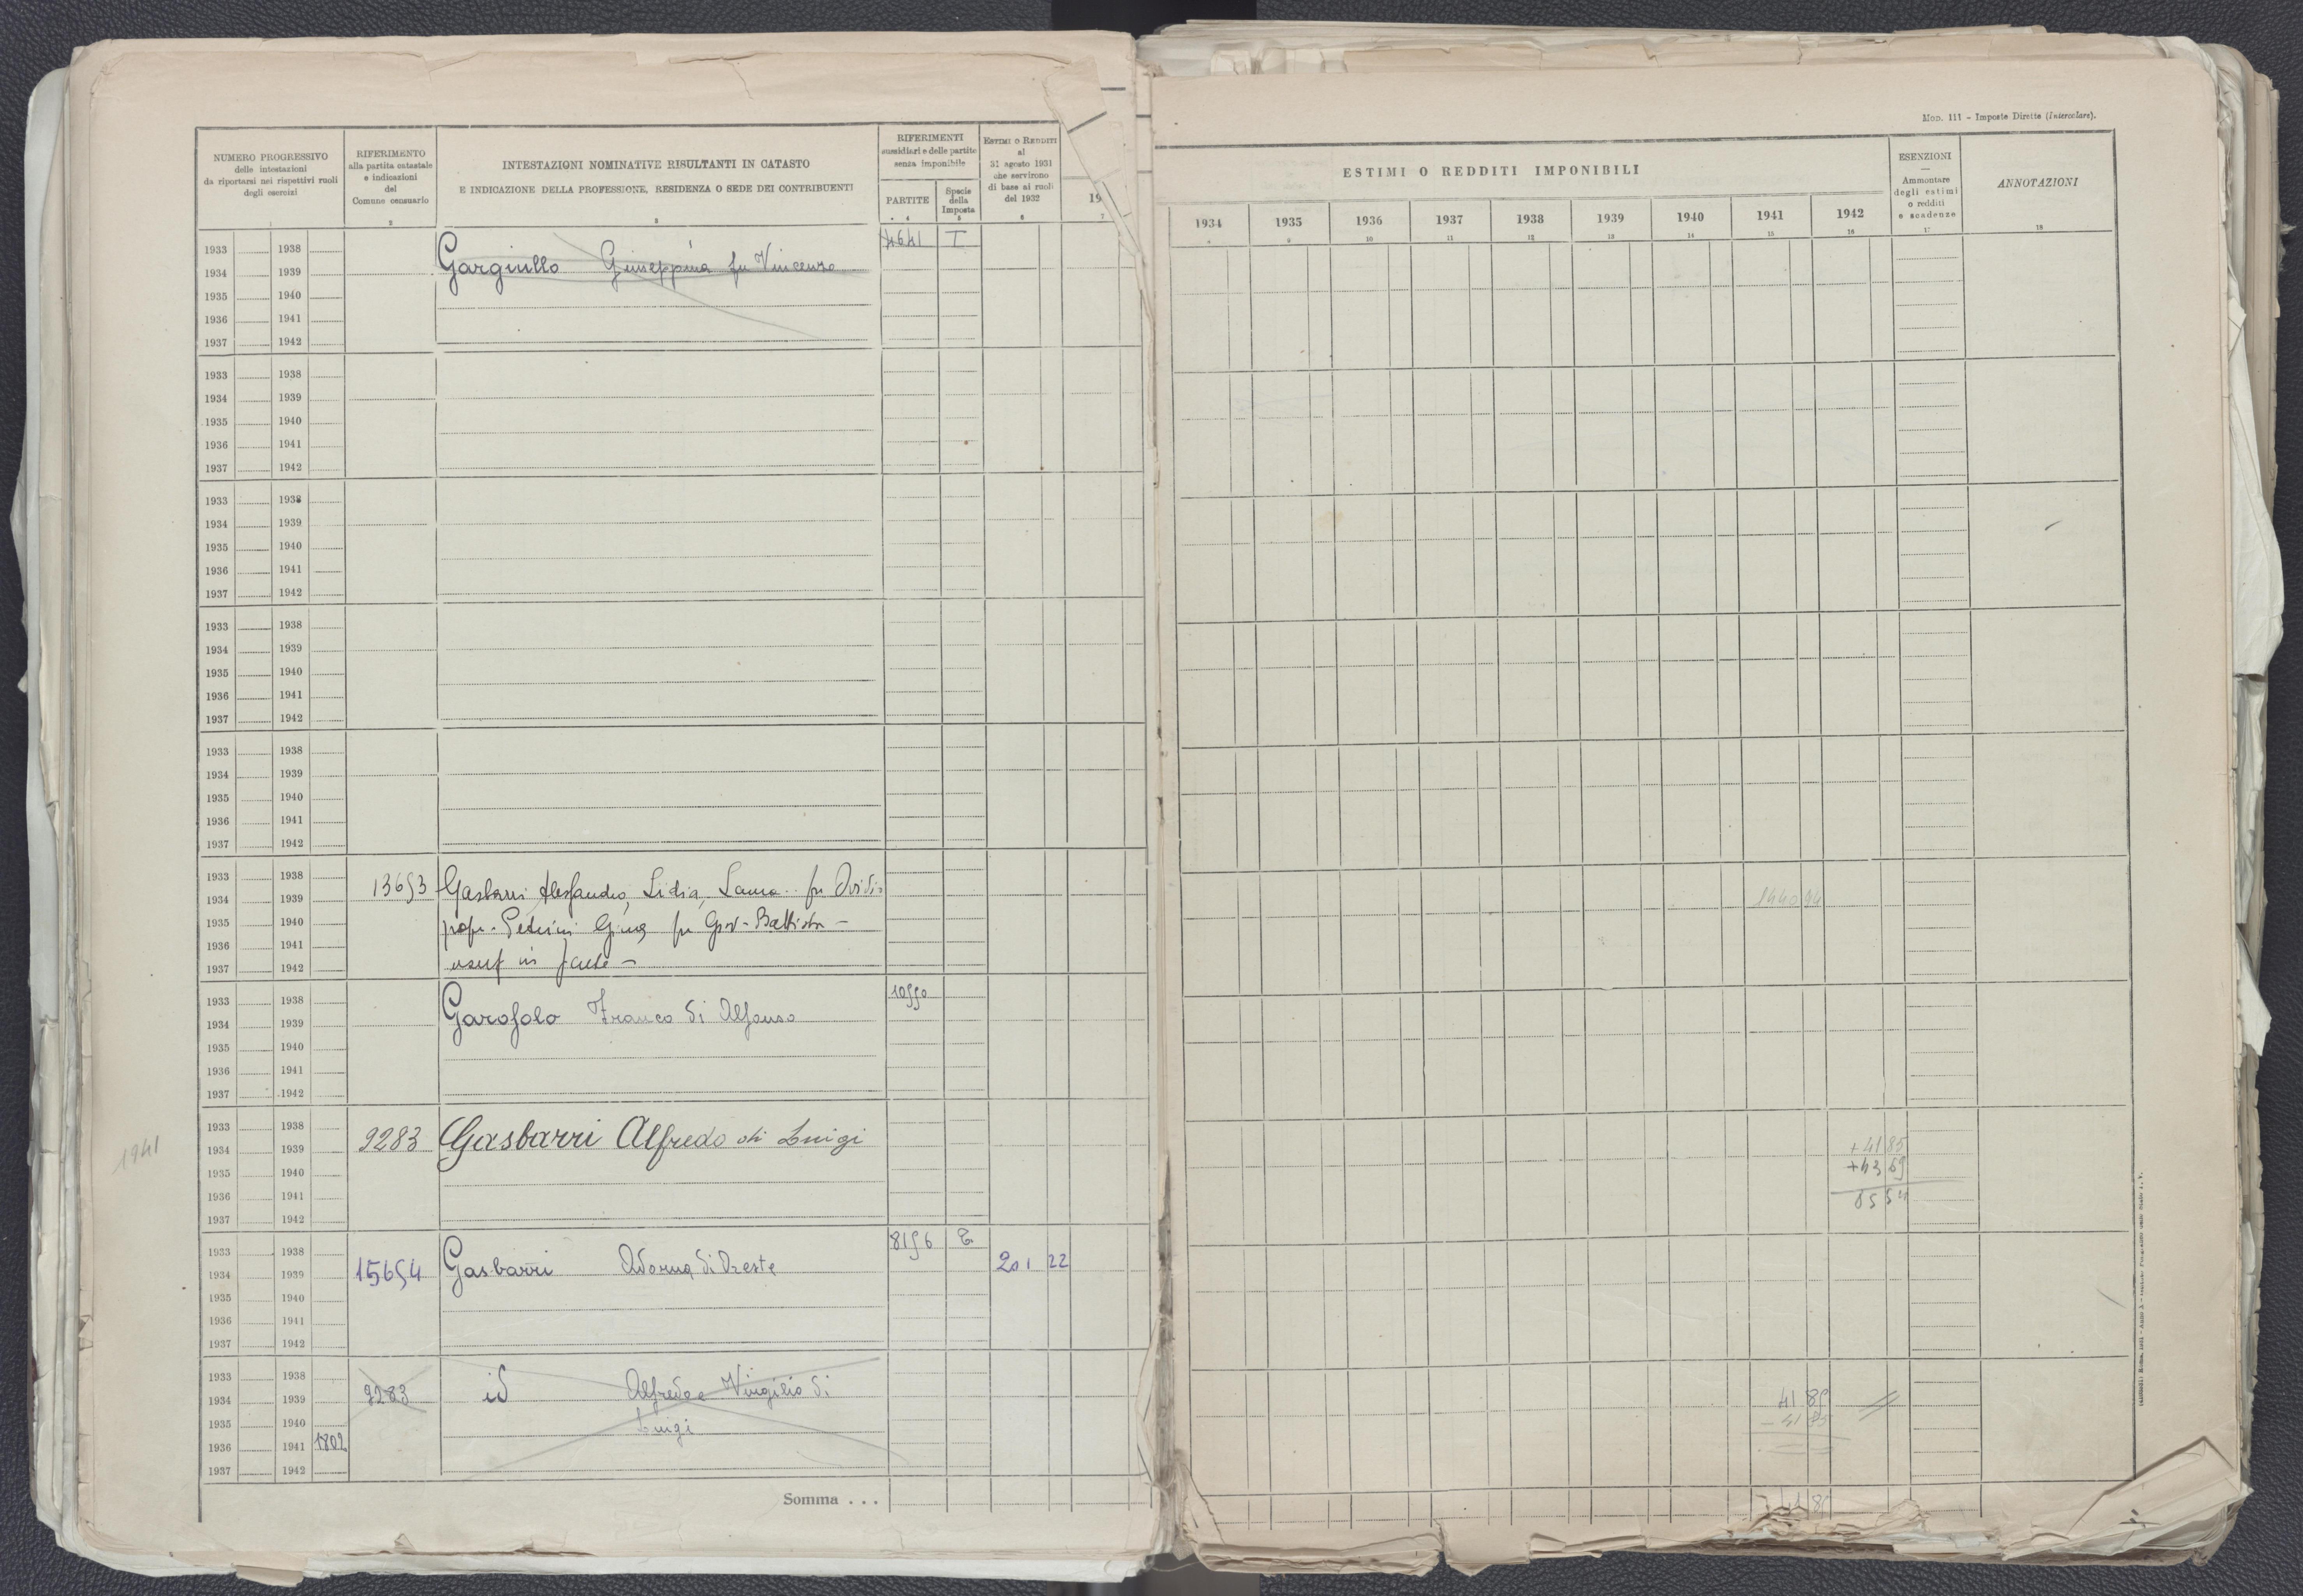 Mod. 111 - Imposte Dirette (Intercolare).
NUMERO PROGRESSIVO
delle intestazioni
da riportarsi nei rispettivi ruoli
degli esercizi
1
RIFERIMENTO
alla partita catastale
e indicazioni
del
Comune censuario
2
INTESTAZIONI NOMINATIVE RISULTANTI IN CATASTO
E INDICAZIONE DELLA PROFESSIONE, RESIDENZA O SEDE DEI CONTRIBUENTI
3
RIFERIMENTI
sussidiari e delle partite
senza imponibile
PARTITE
4
Specie
della
Imposta
5
ESTIMI O REDDITI
al
31 agosto 1931
che servirono
di base ai ruoli
del 1932
6
19
7
ESTIMI O REDDITI IMPONIBILI
1934 1935 1936 1937 1938 1939 1940 1941 1942
9 10 11 12 13 14 15 16
ESENZIONI
—
Ammontare
degli estimi
o redditi
e scadenze
17
ANNOTAZIONI
18
1933 1938 4641 T
1934 1939 Gargiullo Giuseppina fu Vincenzo
1935 1940
1936 1941
1937 1942
1933 1938
1934 1939
1935 1940
1936 1941
1937 1942
1933 1938
1934 1939
1935 1940
1936 1941
1937 1942
1933 1938
1934 1939
1935 1940
1936 1941
1937 1942
1933 1938
1934 1939
1935 1940
1936 1941
1937 1942
1933 1938
1934 1939 13653 Gasbarri Alessandro, Lidia, Laura fu Ovidio 1440 94
1935 1940 propr. Petrini Gina fu Gio-Battista -
1936 1941
1937 1942 usuf in parte -
1933 1938 10550
1934 1939 Garofolo Franco di Alfonso
1935 1940
1936 1941
1937 1942
1933 1938
1941 1934 1939 9283 Gasbarri Alfredo di Luigi + 41 85
1935 1940 + 43 69
1936 1941 85 54
1937 1942
1933 1938 8156 T.
1934 1939 15654 Gasbarri Adorna di Oreste 201 22
1935 1940
1936 1941
1937 1942
1933 1938
1934 1939 9283 id Alfredo e Virgilio di 41 85
1935 1940 Luigi - 41 85
1936 1941 1802
1937 1942
Somma . . .